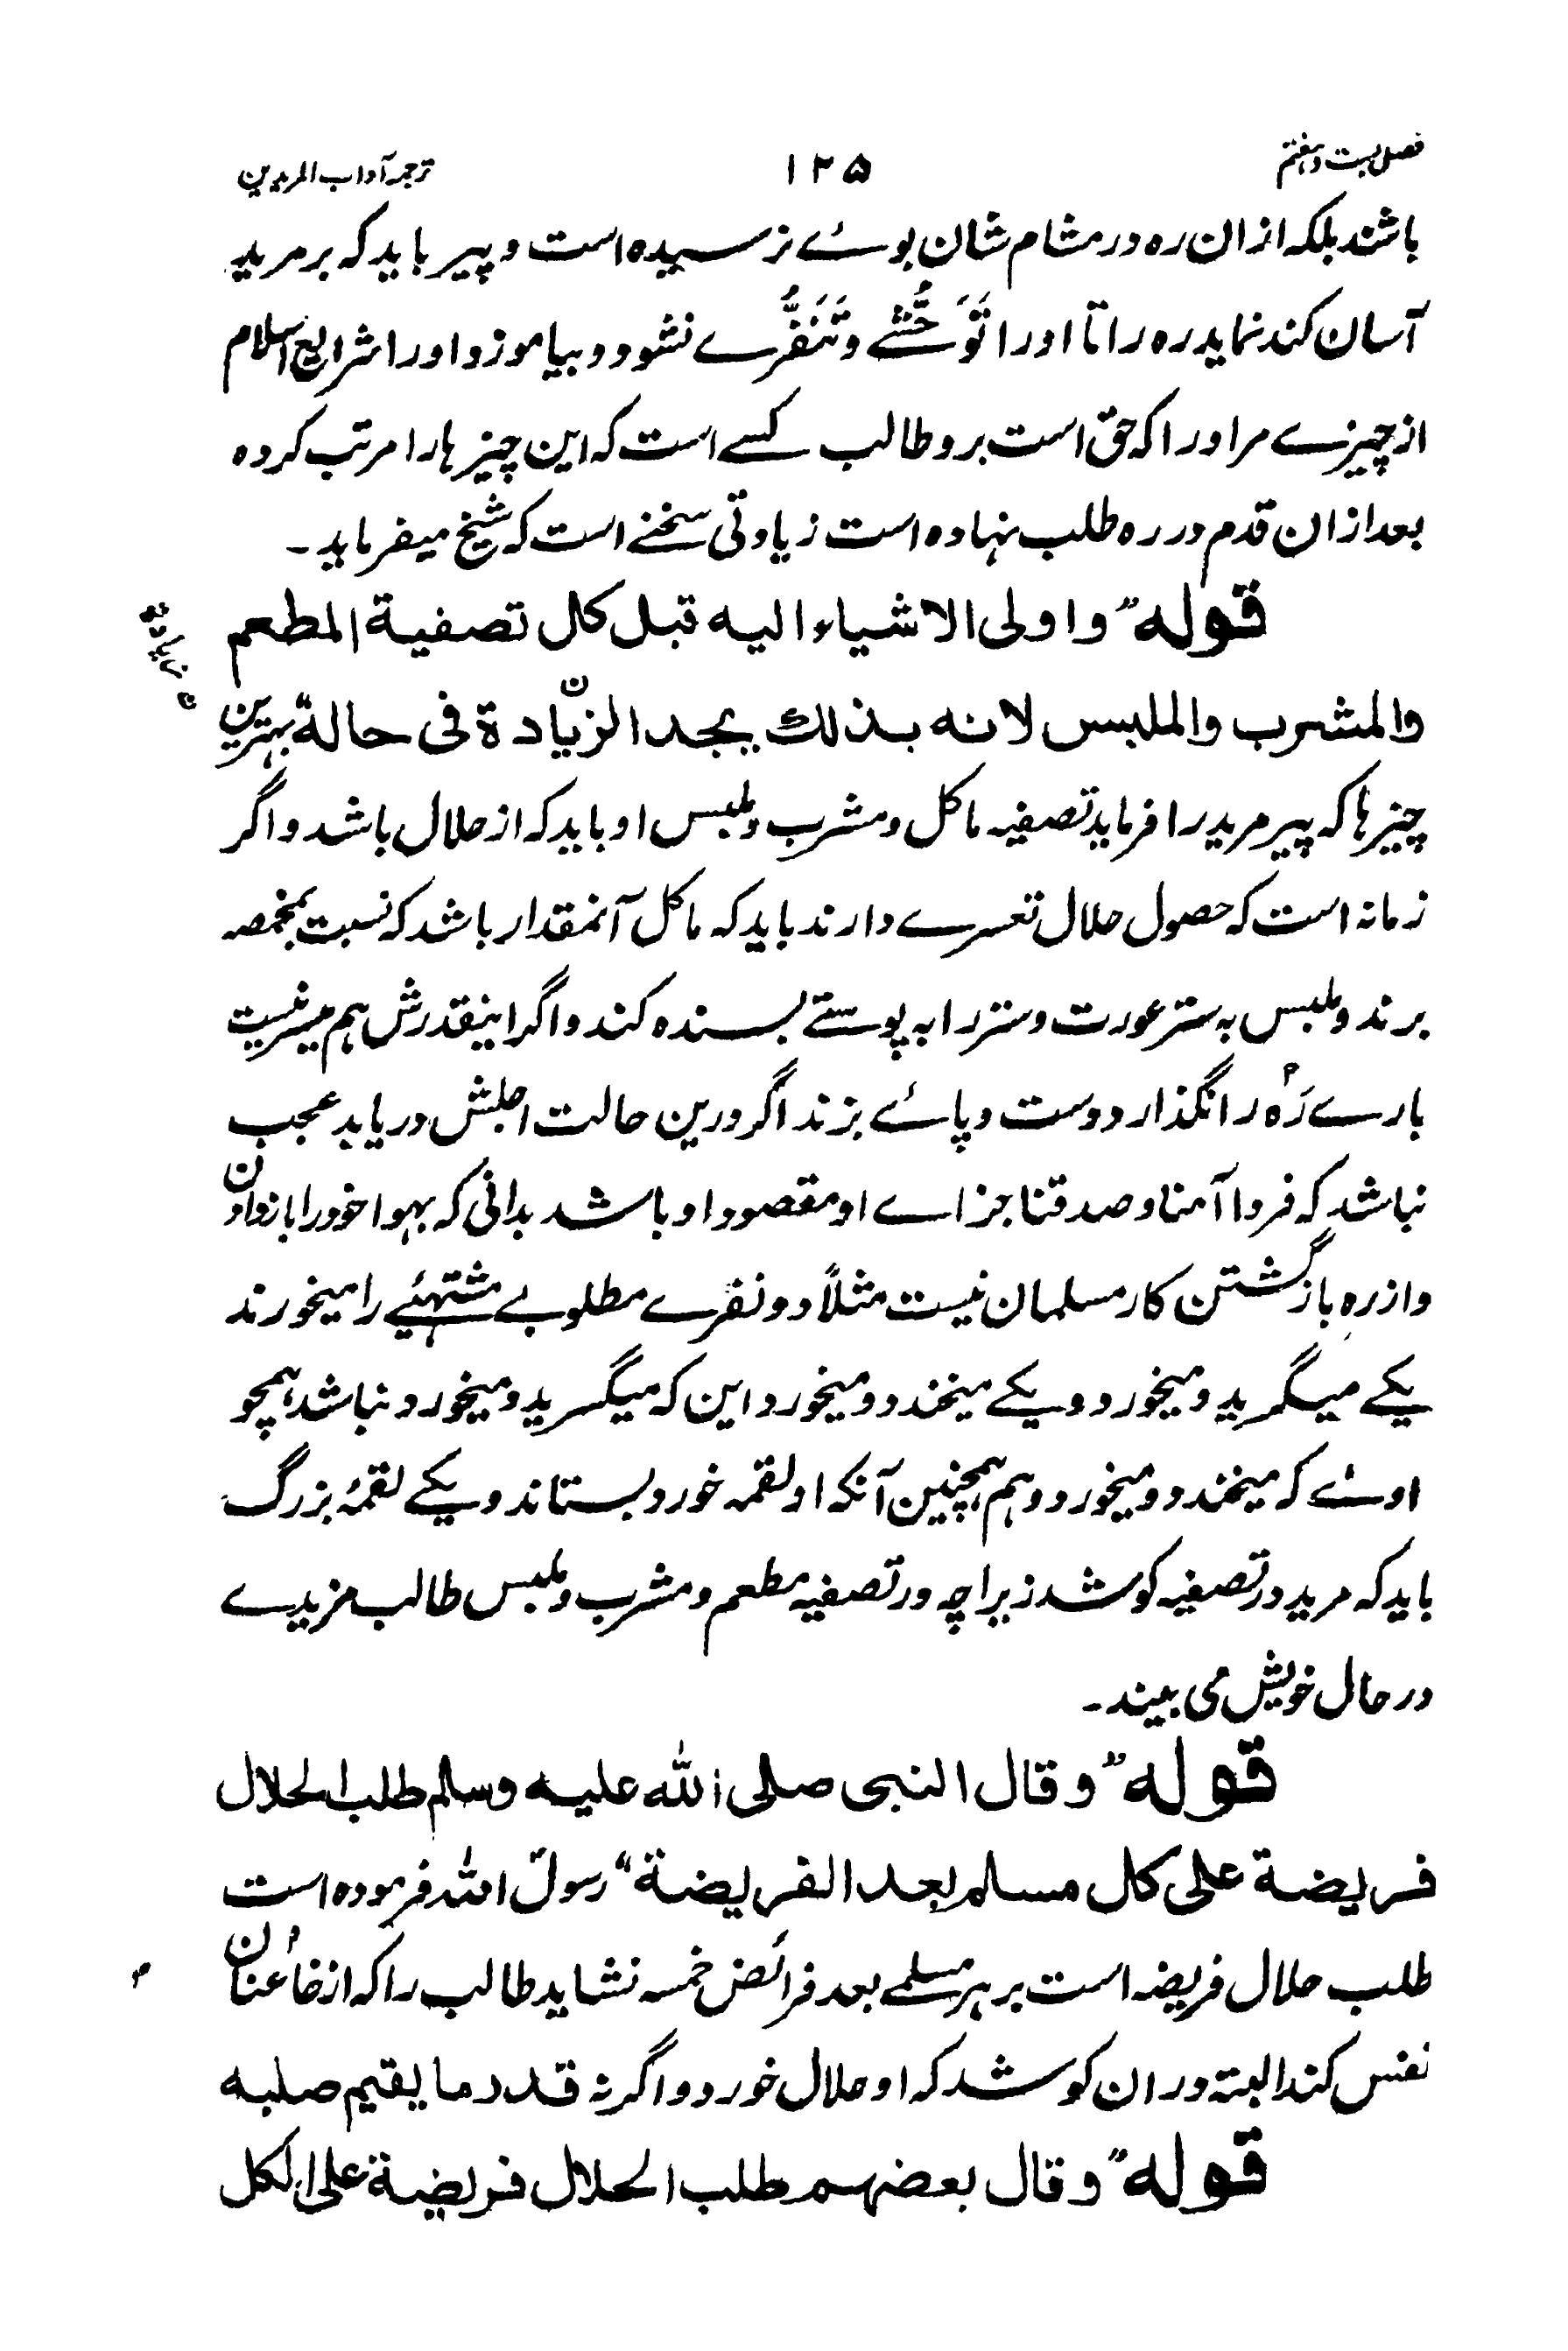 فصل بست و هفتم ۱۲۵ ترجمہ آداب المریدین
باشند بلکہ ازان رہ در مشام شان بوئے نرسیدہ است و پیر باید کہ بر مرید
آسان کند نماید رہ را تا اورا تَوَحُّشے و تَنَفُّرے نشود و بیاموزد اورا شرایع اسلام
از چیزے مر اورا کہ حق است برو طالب کسے است کہ این چیزہا را مرتب کردہ
بعد ازان قدم در رہ طلب نہادہ است زیادتی سخنے است کہ شیخ میفرماید ۔
قولہ ”و اولی الاشیاء الیه قبل کل تصفیة المطعم
والمشرب والملبس لانه بذلك یجد الزیادة فی حالة“ بہترین
ن
چیزہا کہ پیر مرید را فرماید تصفیہ ماکل و مشرب و ملبس او باید کہ از حلال باشد و اگر
زمانہ است کہ حصول حلال تعسرے دارند باید کہ ماکل آنمقدار باشد کہ نسبت بمخمصہ
برند و ملبس بہ ستر عورت و ستر را بہ پوستے بسندہ کند و اگر اینقدرش ہم میسر نیست
بارے رَہ را نگذارد دوست و پائے بزند اگر درین حالت اجلش دریابد عجب
نباشد کہ فردا آمنا و صدقنا جزاے او مقصود او باشد بدانی کہ بہوا خود را باز دادن
و از رہ باز گشتن کار مسلمان نیست مثلاً دو نفرے مطلوبے مشتہئیے را میخورند
یکے میگرید و میخورد و یکے میخندد و میخورد این کہ میگرید و میخورد نباشد ہمچو
اوئے کہ میخندد و میخورد و ہم ہمچنین آنکہ او لقمہ خورد بستاند و یکے لقمۂ بزرگ
باید کہ مرید در تصفیہ کوشد زیرا چہ در تصفیہ مطعم و مشرب و ملبس طالب مزیدے
در حال خویش می بیند ۔
قولہ ”و قال النبی صلی الله علیه وسلم طلب الحلال
فریضة علی کل مسلم بعد الفریضة“ رسول اللہ فرمودہ است
طلب حلال فریضہ است بر ہر مسلمے بعد فرائض خمسہ نشاید طالب را کہ
نفس کند البتہ دران کوشد کہ او حلال خورد و اگر نہ قدر ما یقیم صلبه
قولہ ”و قال بعضهم طلب الحلال فریضة علی الکل